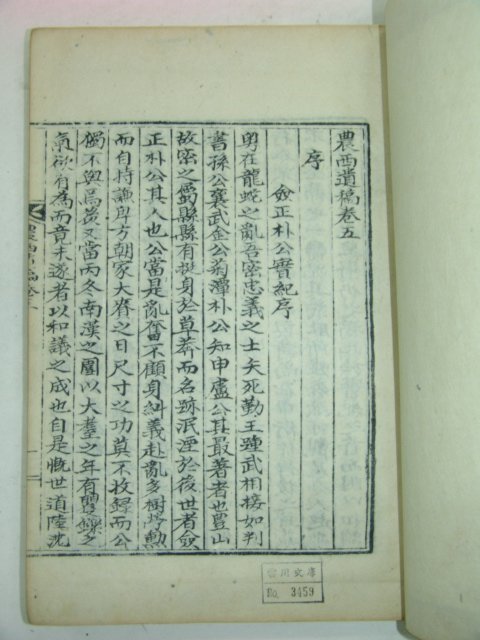 農西遺稿卷五
序
僉正朴公實紀序
粤在龍蛇之亂吾密忠義之士矢死勤王踵武相接如判
書孫公襄武金公菊潭朴公知申盧公其最著者也豊山
故密之屬縣縣有挺身於草莽而名跡泯湮於後世者僉
正朴公其人也公當是亂奮不顧身糾義赴亂多樹勞勳
而自持謙卑方朝家大賚之日尺寸之功莫不收錄而公
獨不與焉後又當丙冬南漢之圍以大耋之年有矍鑠之
氣欲有爲而竟未遂者以和議之成也自是慨世道陸沈
雲川文庫
No. 3459